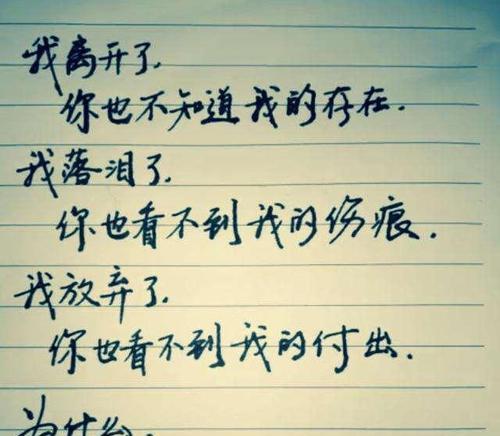 我离开了.
你也不知道我的存在.
我落泪了.
你也看不到我的伤痕.
我放弃了.
你也看不到我的付出.
为什么.